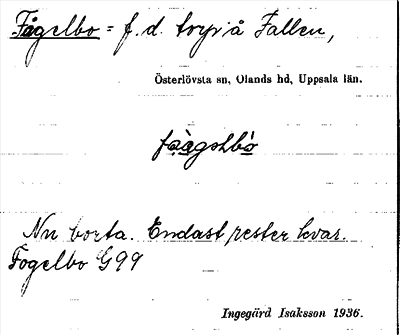 Fågelbo = f. d. torp å Fallen,
Österlövsta sn, Olands hd, Uppsala län.
Nu borta. Endast rester kvar.
Fogelbo G99
Ingegärd Isaksson 1936.